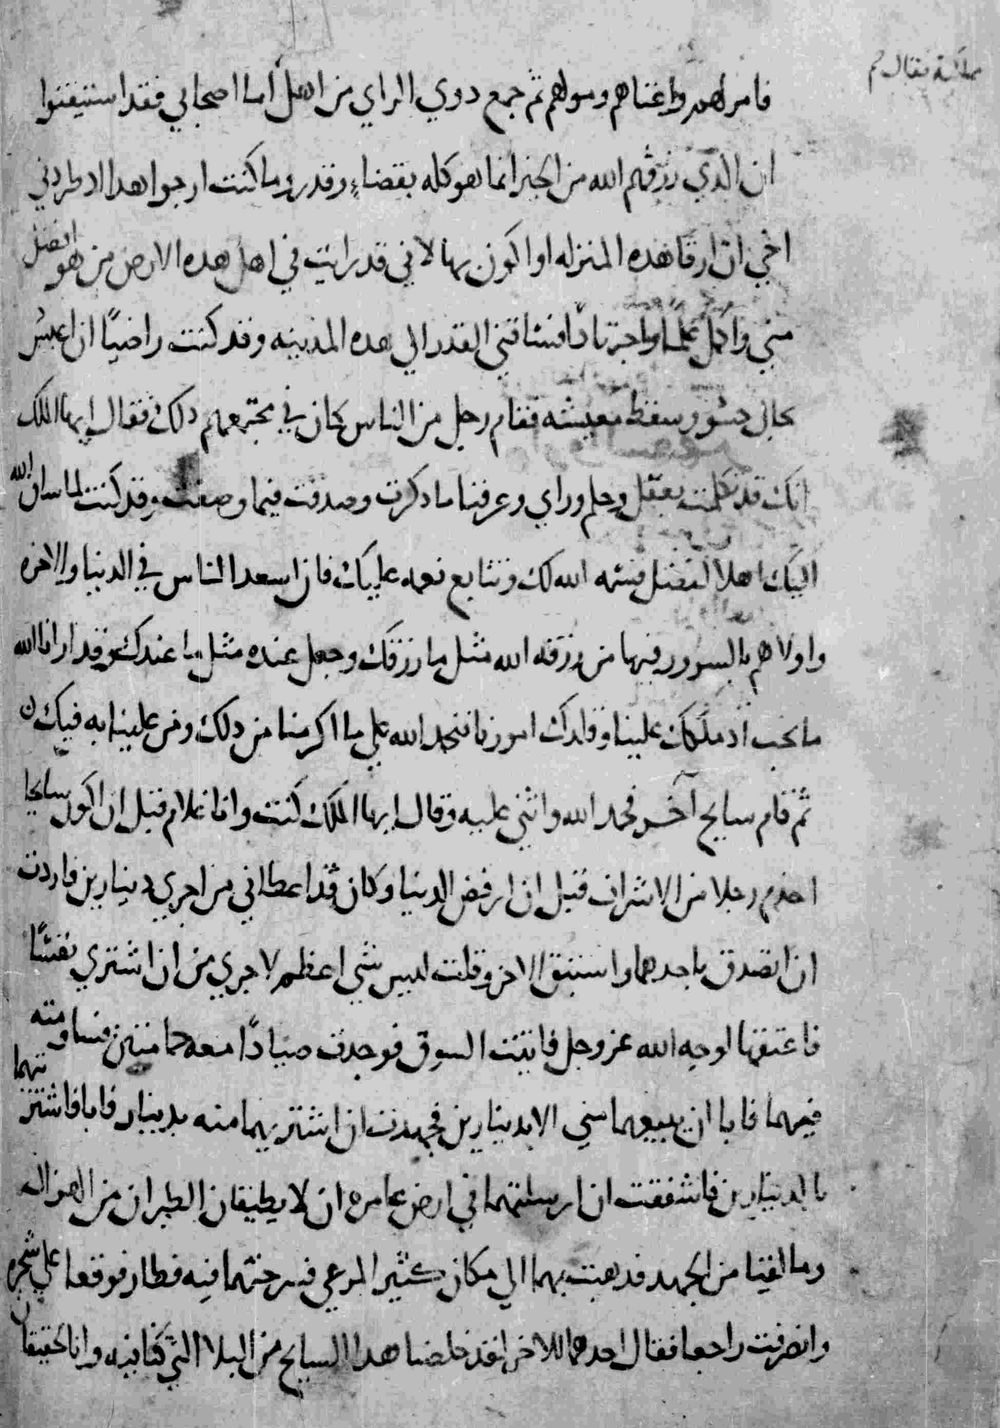 فامر لهم واغناهم ومولهم ثم جمع دوي الراي من اهل اما اصحابي فقد استيقنوا
ان الدي رزقهم الله من الخير انما هو كله بقضاء وقدر وما كنت ارجوا هدا اد طردني
اخي ان ارقا هده المنزله او اكون بها لاني قد رايت في اهل هده الارض من هو افضل
مني واكمل علما واجتهادا فساقني القدر الي هده المدينه وقد كنت راضيا ان اعيش
بحال وسقط معيشه فقام رجل من الناس كان في مجتمعهم دلك فقال ايها الملك
انك قد تكلمت بعقل وحلم وراي وعرفنا ما دكرت وصدقت فيما وصفت وقد كنت لما ساق الله
اليك اهلا لفضل قسمه الله لك وتتابع نعمه عليك فان اسعد الناس في الدنيا والاخره
واولاهم بالسرور فيها من رزقه الله مثل ما رزقك وجعل عنده مثل ما عندك وقد ارانا الله
ما نحب اد ملكك علينا وقلدك امورنا فنحمد الله علي ما اكرمنا من دلك ومن علينا به فيك
ثم قام سايح آخر فحمد الله واثني عليه وقال ايها الملك كنت وانا غلام قبل ان اكون سايحا
اخدم رجلا من الاشراف قبل ان ارفض الدنيا وكان قد اعطاني من اجري دينارين فاردت
ان اتصدق باحدهما واستبق الاخر وقلت ليس شي اعظم لاجري من ان اشتري نفسًا
فاعتقها لوجه الله عز وجل فاتيت السوق فوجدت صيادًا معه حمامتين فساومته
فيهما فابا ان يبيعهما مني الا بدينارين فجهدت ان اشتريهما منه بدينار فابا فاشتريتهما
بالدينارين فاشفقت ان ارسلتهما في ارض عامره ان لا يطيقان الطيران من الهزال
وما لقيا من الجهد فدهبت بهما الي مكان كثير المرعي فسرحتهما فيه فطار فوقعا علي شجره
وانصرفت راجعا فقال احدهما للاخر لقد خلصنا هدا السايح من البلا الدي كنا فيه وانا لحقيقان